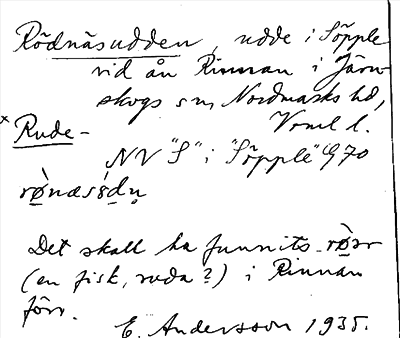 Rödnäsudden, udde i Söpple
vid ån Rinnan i Järn-
skogs sn, Nordmarks hd,
Vrml l.
× Rude-
NV "S" i "Söpple" G 70
Det skall ha funnits
(en fisk, ruda?) i Rinnan
förr.
E. Andersson 1935.